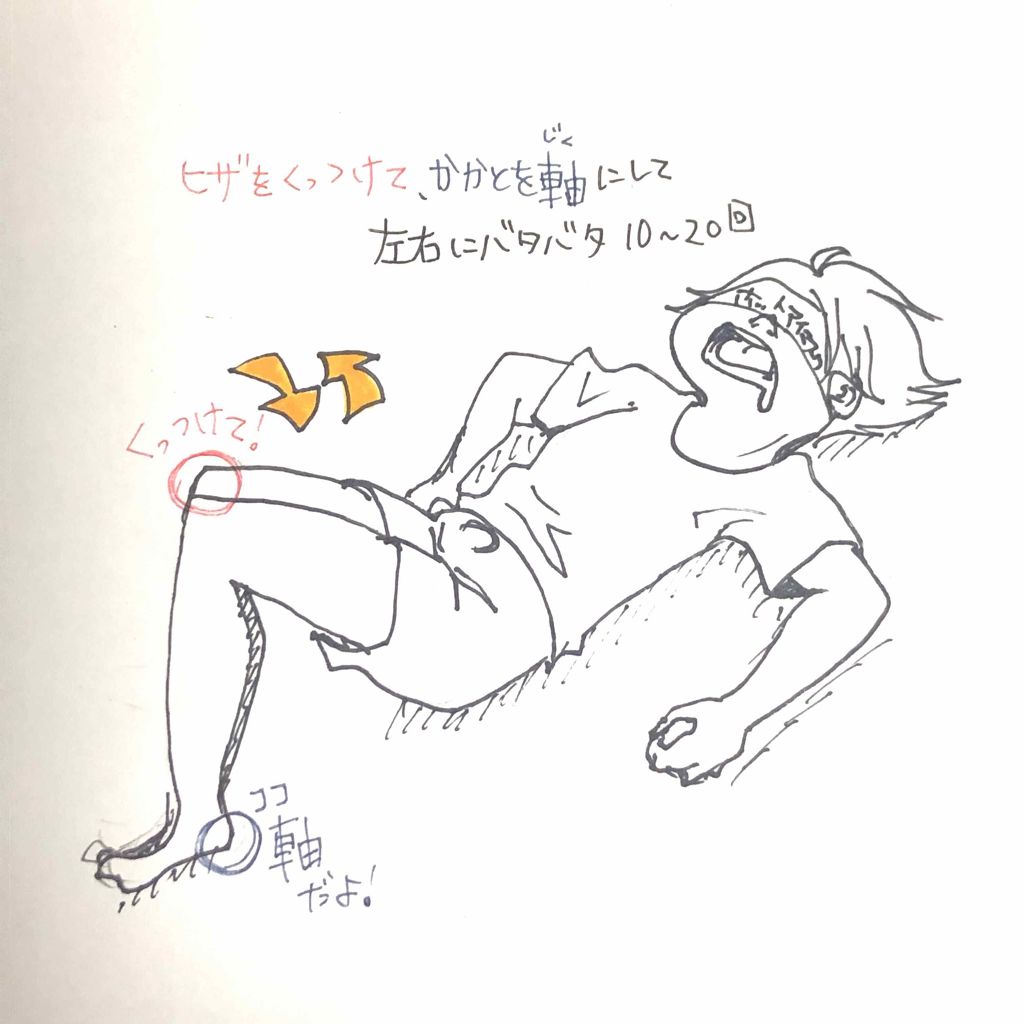 じく
ヒザをくっつけて、かかとを軸にして
左右にバタバタ 10~20回
くっつけて!
ココ
軸
だよ!